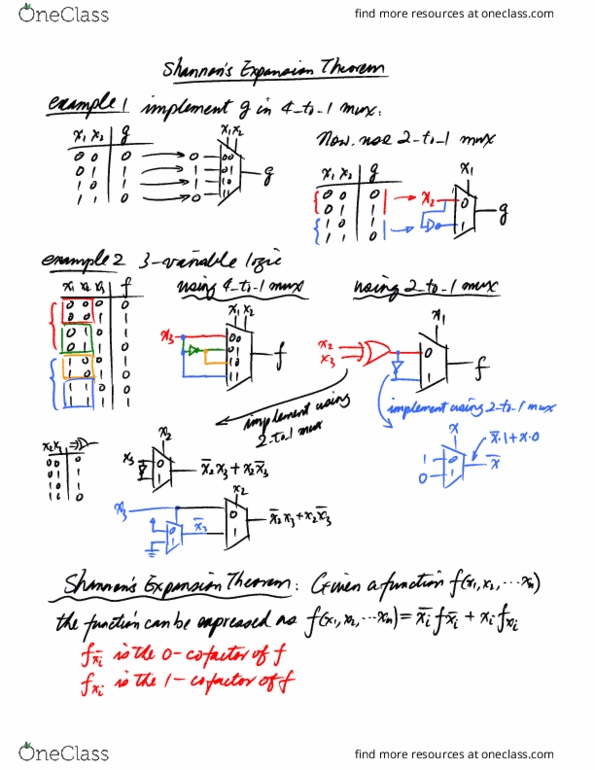 OneClass
find more resources at oneclass.com
Shannon's Expansion Theorem
example 1 implement g in 4-to-1 mux.
x1 x2 g
0 0 0
0 1 1
1 0 1
1 1 0
0
1
1
0
x1 x2
00
01
10
11
g
Now. use 2-to-1 mux
x1 x2 g
0 0 0
0 1 1
1 0 1
1 1 0
x2
x1
0
1
g
example 2 3-variable logic
x1 x2 x3 f
using 4-to-1 mux
using 2-to-1 mux
x3
x1 x2
00
01
10
11
f
x2
x3
x1
0
1
f
implement using
2-to-1 mux
implement using 2-to-1 mux
x
1
0
0
1
x̅·1+x·0
x̅
x2 x3 ⇒
0 0 0
0 1 1
1 0 1
1 1 0
x3
x2
0
1
x̅2x3 + x2x̅3
x3
0
1
x̅3
x2
0
1
x̅2x3 + x2x̅3
Shannon's Expansion Theorem: Given a function f(x1, x2, ...xn)
the function can be expressed as f(x1, x2, ...xn) = x̅i fx̅i + xi fxi
fx̅i is the 0-cofactor of f
fxi is the 1-cofactor of f
OneClass
find more resources at oneclass.com